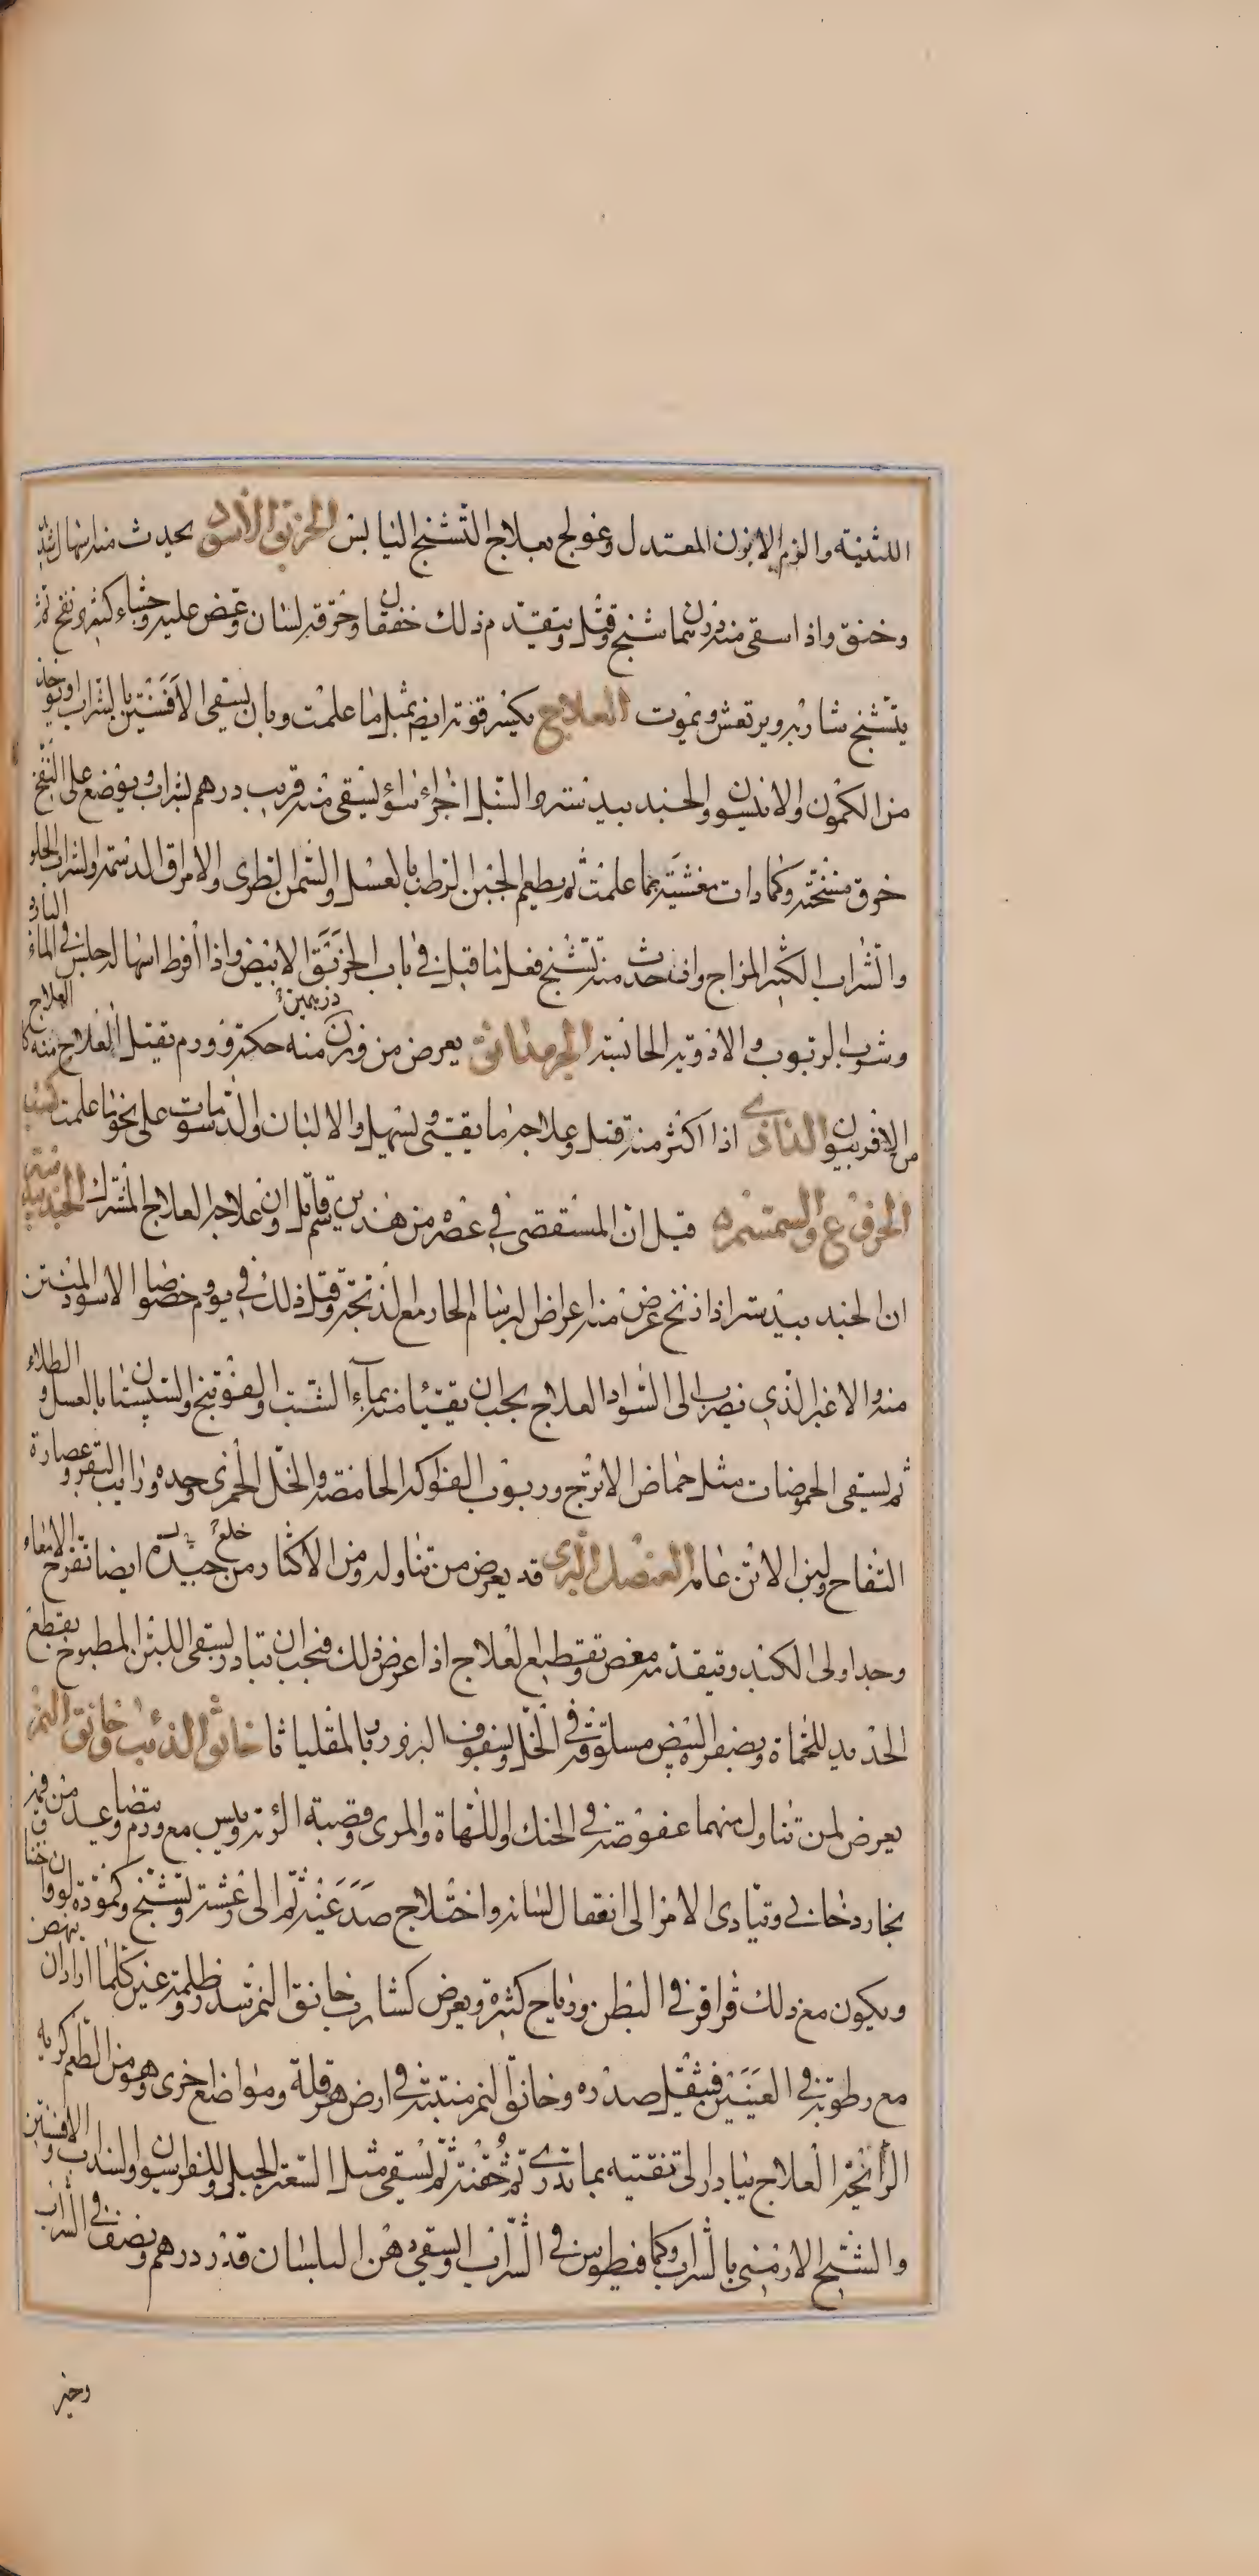 اللثنية والزم الابزن المعتدل وعولج بعلاج التشنج اليابس الخربق الأسود يحدث منه اسهال شديد
وخنق واذا سقى منه وزن درهما شنج وقتل ويتقدم ذلك خفقان وحرقة لسان وعض عليه وجشاء كثير ونفخ ثم
يتشنج شاربه ويرتعش ويموت العلاج يكسر قوته ايضا بمثل ما علمت وبان يسقى الافسنتين بالشراب او يؤخذ
من الكمون والانيسون والجندبيدستر والسنبل اجزاء سواء يسقى منه قريب درهم بشراب ويوضع على النفخ
خرق مسخنة وكمادات مغشية بما علمت ثم يطعم الجبن الرطب بالعسل والسمن الطرى والامراق الدسمة والشراب الحلو
والشراب الكثير المزاج وان حدث منه تشنج فعل ما قيل في باب الخربق الابيض واذا أفرط اسهاله جلس في الماء البارد
وشرب الربوب والادوية الحابسة الجرمدانق يعرض من وزن درهمين منه حكة وورم يقتل العلاج العلاج منه كما
من الافربيون الدادى اذا اكثر منه قتل وعلاجه ما يقيئ ويسهل والالبان والدسومات على نحو ما علمت
الخروع والسمسم قيل ان المستقصى في عصره من هذين سم قاتل وان علاجه العلاج المشترك الجندبيدستر
ان الجندبيدستر اذا زنخ عرض منه اعراض البرسام الحار مع لذ نجته وقتل ذلك في يوم وخصوصا الاسود المنتن
منه والاغبر الذي يضرب الى السواد العلاج يجب ان يقتيأ منه بماء الشبت والفوتنج والسبستان بالعسل والطلاء
ثم يسقى الحموضات مثل حماض الاترج وربوب الفواكه الحامضة والخل الخمرى وحده ورايب البقر وعصارة
التفاح ولبن الاتن غاية العنصل البرى قد يعرض من تناوله ومن الاكثار من جيده ايضا تقرح الامعاء
وجداول الكبد ويتقدمه مغص وتقطيع العلاج اذا عرض ذلك فيجب ان يبادر يسقى اللبن المطبوخ بقطع
الحديد للمحماة وبصفر البيض مسلوقة في الخل وسفوف البزور وبالمقلياثا خانق الذئب خانق النمر
يعرض لمن تناول منهما عفوصة في الحنك واللهاة والمرى وقصبة الرئة ويبس مع ورم ويتصاعد من فمه
بخار دخاني ويتادى الامر الى انعقال لسانه واختلاج صدغيه ثم الى رعشة وتشنج وكمودة لون
ويكون مع ذلك قراقر في البطن ورياح كثيرة ويعرض كشارب خانق النمر سدر وظلمة عين كلما اراد ان ينهض
مع رطوبة في العينين فيثقل صدره وخانق النمر منبته في ارض هرقلة ومواضع اخرى وهو مر الطعم كريه
الرائحة العلاج يبادر الى تنقيته بما تدرى ثم تحقنه ثم يسقى مثل السعتر الجبلى والفراسيون والسذاب والافسنتين
والشيح الارمنى بالشراب وكمافيطوس في الشراب والسقى دهن البلسان قدر درهم ونصف في الشراب
وخير